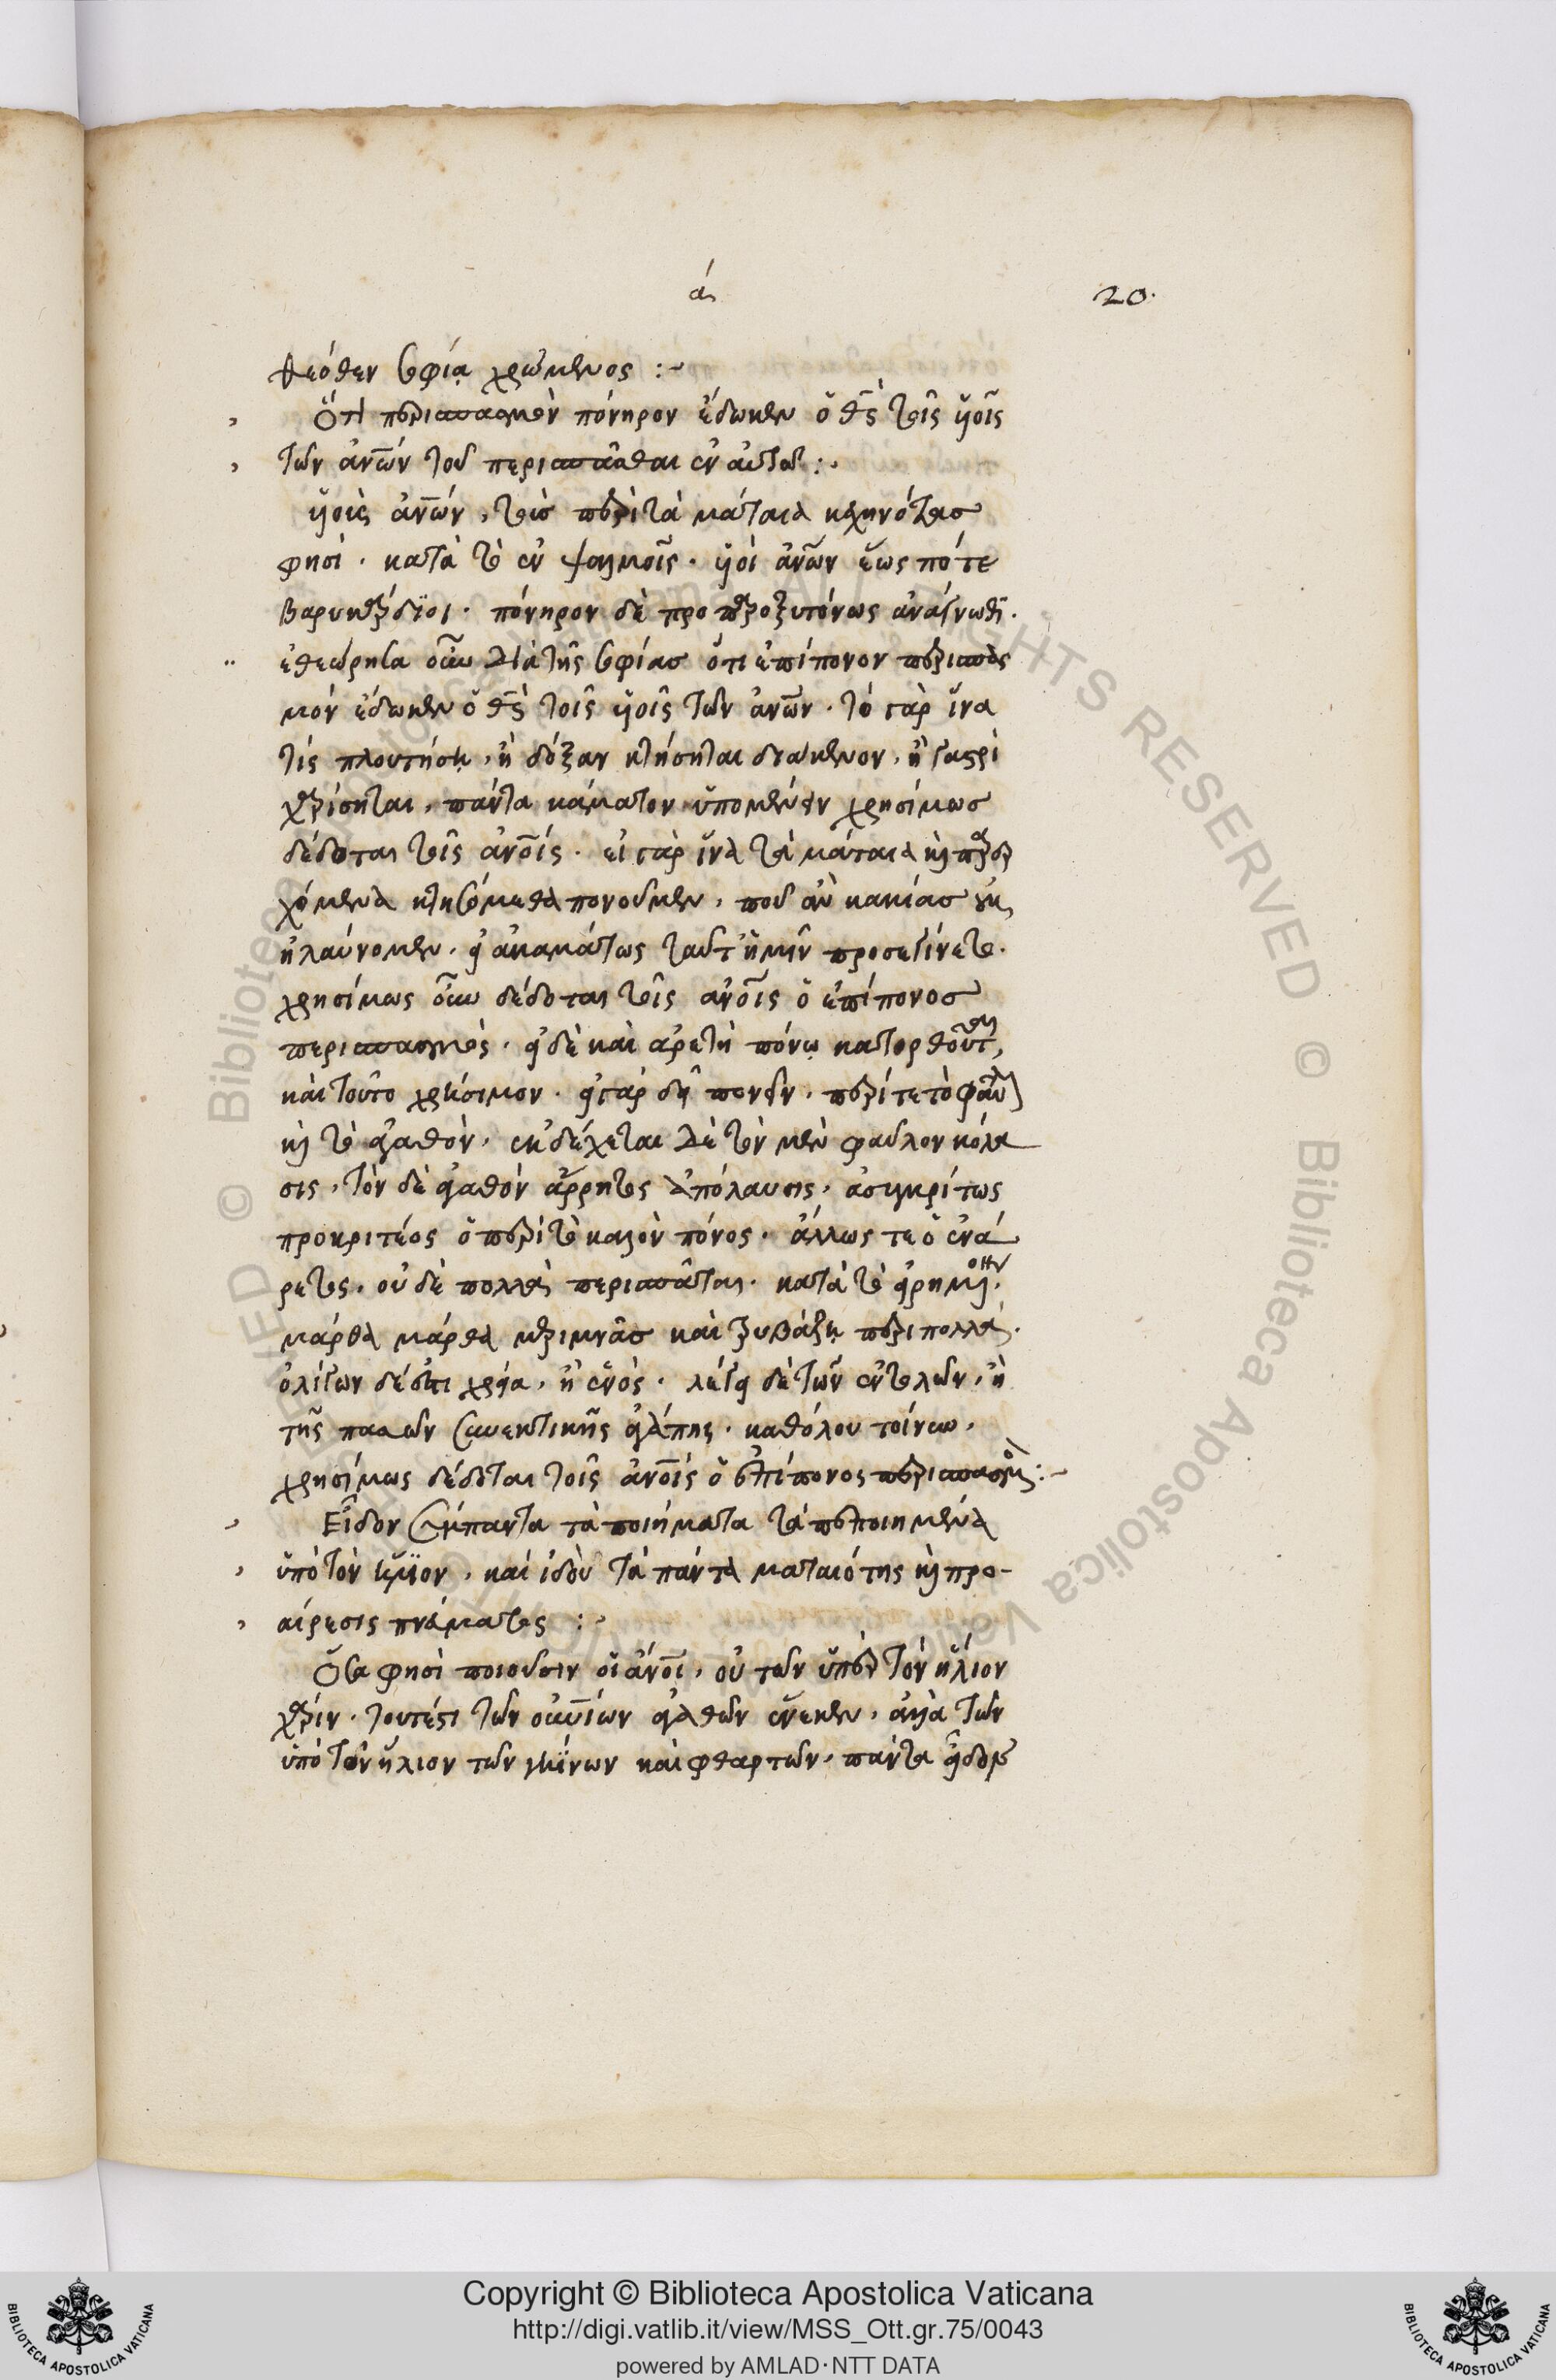 ά
20.
θεόθεν σοφία χρώμενος :~
Ὅτι περισπασμὸν πόνηρον ἔδωκεν ὁ θ̅ς̅ τοῖς υἱοῖς
τῶν ἀν̅ω̅ν τοῦ περισπᾶσθαι ἐν αὐτῶ :~
υἱοῖς ἀν̅ω̅ν, τοῖς περὶ τὰ μάταια κεχηνότας
φησὶ · κατὰ τὸ ἐν ψαλμοῖς · υἱοὶ ἀν̅ω̅ν ἕως πότε
βαρυκάρδϊοι · πόνηρον δὲ προπαροξυτόνως ἀνάγνωθι ·
ἐθεώρησα οὖν διὰ τῆς σοφίας ὅτι ἐπίπονον περισπασ
μὸν ἔδωκεν ὁ θ̅ς̅ τοῖς υἱοῖς τῶν ἀν̅ω̅ν · τὸ γὰρ ἵνα
τίς πλουτήση, ἢ δόξαν κτήσηται διάκενον, ἢ γαστρὶ
χαρίσηται, πάντα κάματον ὑπομένειν χρησίμως
δέδοται τοῖς ἀν̅ο̅ις · εἰ γὰρ ἵνα τὰ μάταια καὶ παρερ
χόμενα κτησόμεθα πονοῦμεν, ποῦ ἂν κακίας οὐκ
ἠλαύνομεν, εἰ ἀκαμάτως ταῦτ' ἡμῖν προσεγίνετο ·
χρησίμως οὖν δέδοται τοῖς ἀν̅ο̅ις ὁ ἐπίπονος
περισπασμὸς · εἰ δὲ καὶ ἀρετὴ πόνω κατορθοῦται,
καὶ τοῦτο χρήσιμον · εἰ γὰρ δεῖ πονεῖν, περί τε τὸ φαῦλον
καὶ τὸ ἀγαθὸν, ἐκδέχεται δὲ τὸν μὲν φαῦλον κόλα
σις, τὸν δὲ ἀγαθὸν ἄρρητος ἀπόλαυσις, ἀσυγκρίτως
προκριτέος ὁ περὶ τὸ καλὸν πόνος · ἄλλως τε ὁ ἐνά
ρετος, οὐδὲ πολλὰ περισπᾶται · κατὰ τὸ εἰρημένον ·
μάρθα μάρθα μεριμνᾶς καὶ τυρβάζη περὶ πολλά ·
ὀλίγων δέ ἐστι χρεία, ἢ ἑνὸς · λέγει δὲ τῶν ἐντολῶν, ἢ
τῆς πασῶν συνεκτικῆς ἀγάπης · καθόλου τοίνυν,
χρησίμως δέδοται τοῖς ἀν̅ο̅ις ὁ ἐπίπονος περισπασμός :~
Εἶδον σύμπαντα τὰ ποιήματα τὰ πεποιημένα
ὑπὸ τὸν ἥλϊον, καὶ ἰδοὺ τὰ πάντα ματαιότης καὶ προ-
αίρεσις πν̅ε̅ύματος :~
Ὅσα φησὶ ποιοῦσιν οἱ ἄν̅ο̅ι, οὐ τῶν ὑπὲρ τὸν ἥλιον
χάριν · τουτέστι τῶν οὐ̅ν̅ίων ἀγαθῶν ἕνεκεν, ἀλλὰ τῶν
ὑπὸ τὸν ἥλιον τῶν γηΐνων καὶ φθαρτῶν, πάντα εἶδον
Copyright © Biblioteca Apostolica Vaticana
http://digi.vatlib.it/view/MSS_Ott.gr.75/0043
powered by AMLAD·NTT DATA